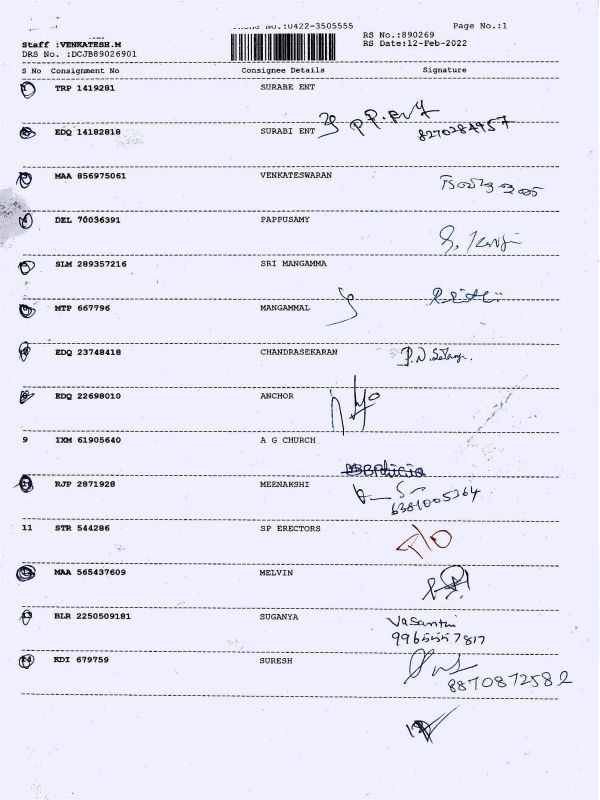 Phone No.:0422-3505555 Page No.:1
RS No.:890269
Staff :VENKATESH.M RS Date:12-Feb-2022
DRS No. :DCJB89026901
S No Consignment No Consignee Details Signature
1 TRP 1419281 SURABE ENT
2 EDQ 14182818 SURABI ENT 8270284957
3 MAA 856975061 VENKATESWARAN
4 DEL 70036391 PAPPUSAMY
5 SLM 289357216 SRI MANGAMMA
6 MTP 667796 MANGAMMAL
7 EDQ 23748418 CHANDRASEKARAN
8 EDQ 22698010 ANCHOR
9 IXM 61905640 A G CHURCH
10 RJP 2871928 MEENAKSHI
6381005364
11 STR 544286 SP ERECTORS
12 MAA 565437609 MELVIN
13 BLR 2250509181 SUGANYA Vasanthi
14 KDI 679759 SURESH
8870872582